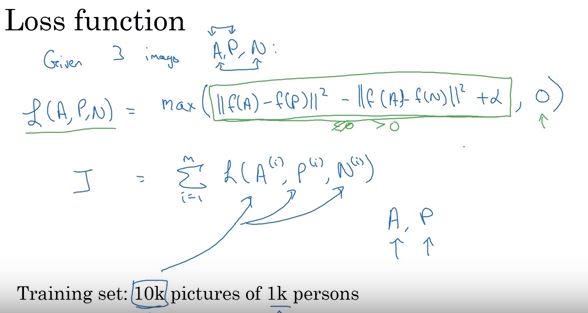 Loss function
Given 3 images A, P, N :
L(A,P,N) = max(||f(A)-f(P)||² - ||f(A)-f(N)||² + α, 0)
≤0 >0
J = Σ_{i=1}^{m} L(A⁽ⁱ⁾, P⁽ⁱ⁾, N⁽ⁱ⁾)
A, P
Training set: 10k pictures of 1k persons